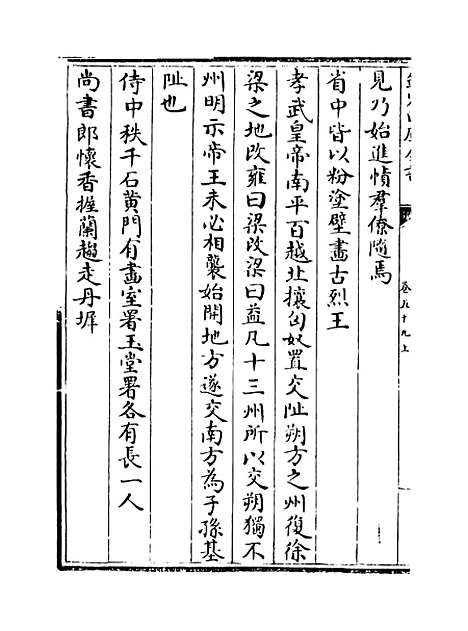 卷五十九上
見乃始進幘羣僚隨焉
省中皆以粉塗壁畫古烈王
孝武皇帝南平百越北攘匈奴置交阯朔方之州復徐
梁之地改雍曰梁改梁曰益凡十三州所以交朔獨不
州明示帝王未必相襲始開地方遂交南方為子孫基
阯也
侍中秩千石黄門有畫室署玉堂署各有長一人
尚書郎懷香握蘭趨走丹墀